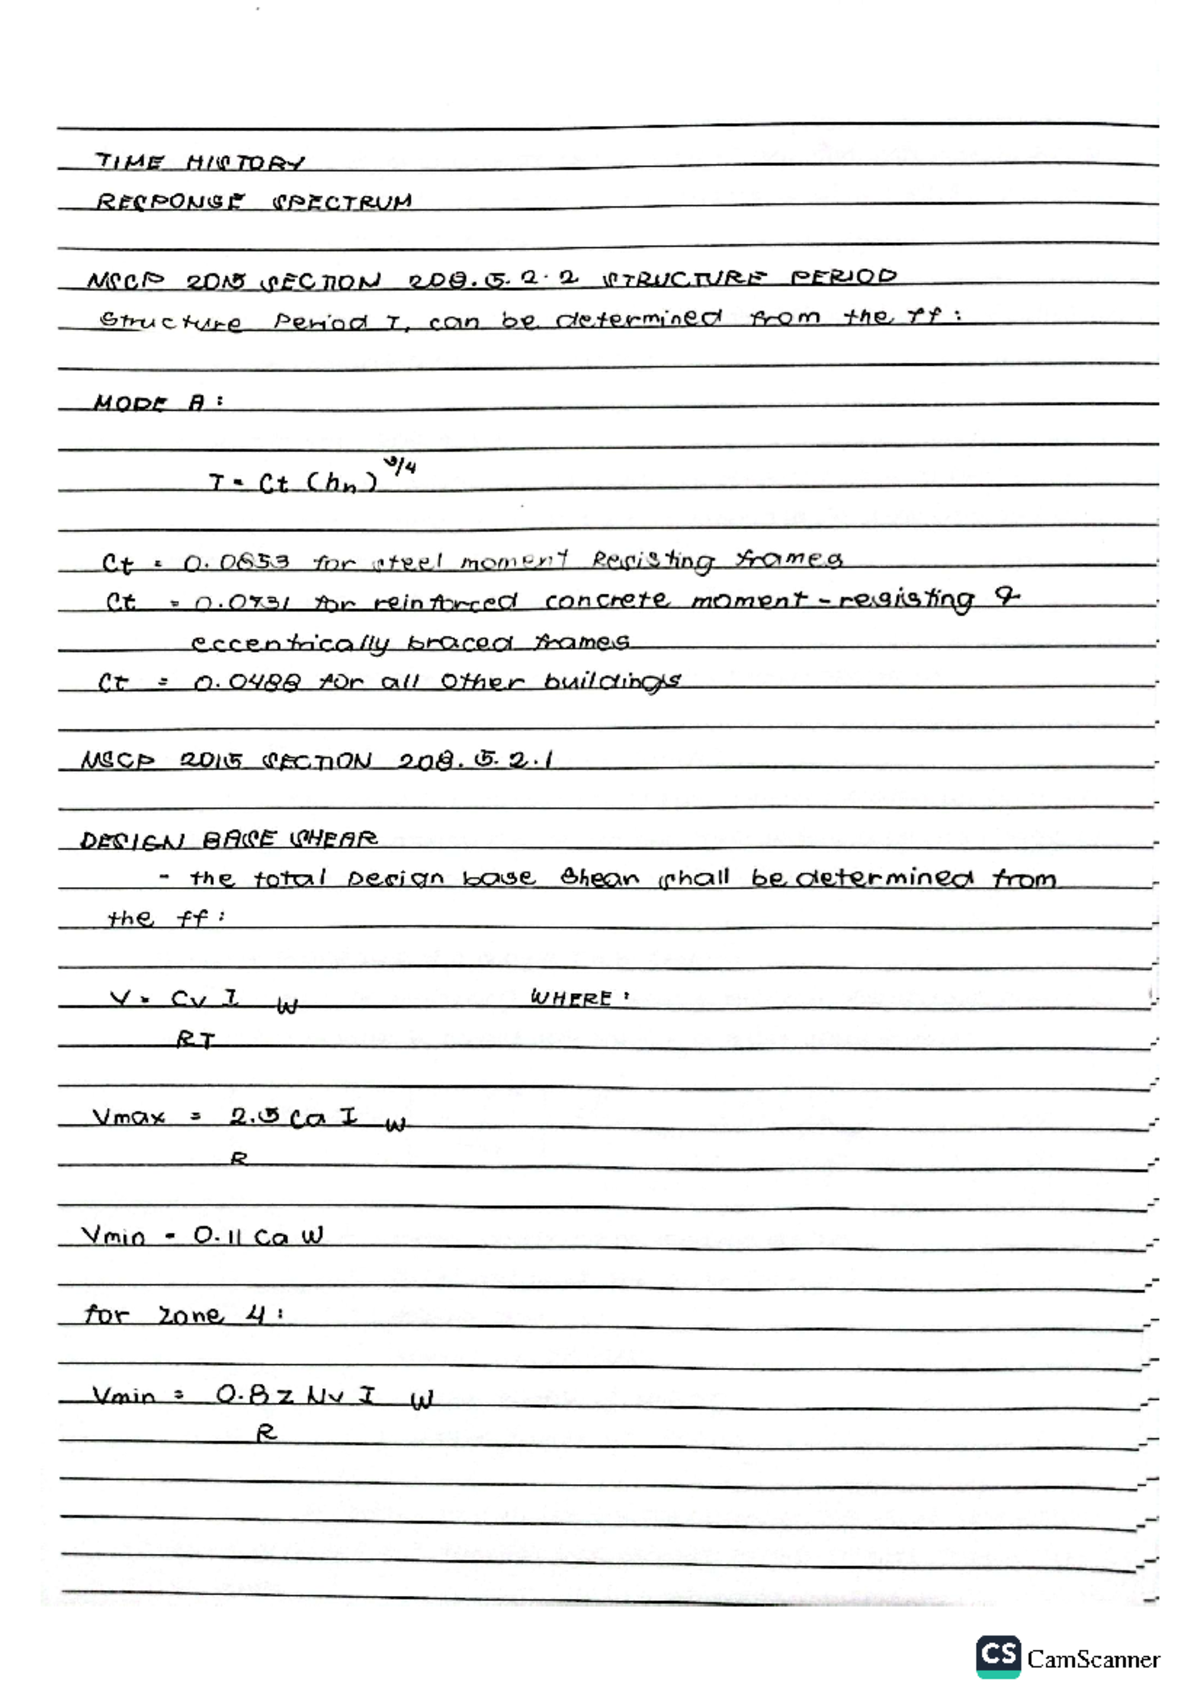 TIME HISTORY
RESPONSE SPECTRUM
NSCP 2015 SECTION 208.5.2.2 STRUCTURE PERIOD
Structure Period T, can be determined from the ff:
MODE A:
T = Ct (hn)^3/4
Ct = 0.0853 for steel moment Resisting frames
Ct = 0.0731 for reinforced concrete moment-resisting &
eccentrically braced frames
Ct = 0.0488 for all other buildings
NSCP 2015 SECTION 208.5.2.1
DESIGN BASE SHEAR
- the total Design base Shear shall be determined from
the ff:
V = Cv I W WHERE:
RT
Vmax = 2.5 Ca I W
R
Vmin = 0.11 Ca W
for zone 4:
Vmin = 0.8 Z Nv I W
R
CS CamScanner